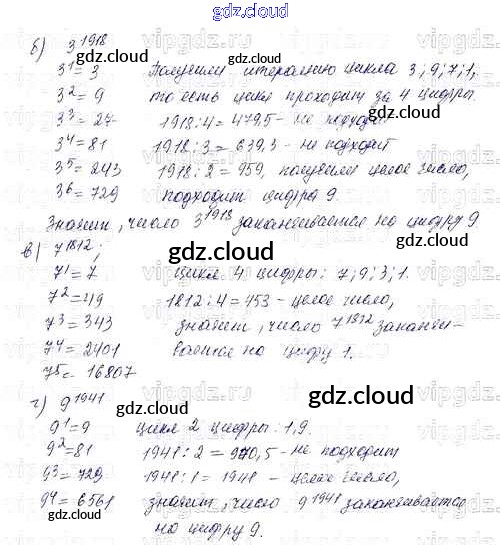 gdz.cloud
gdz.cloud
б) 3^1918
3^1 = 3 Получили итерацию цикла 3; 9; 7; 1,
3^2 = 9 то есть цикл проходит за 4 цифры.
3^3 = 27 1918:4=479,5 - не подходит
3^4 = 81 1918:3=639,3 - не подходит
3^5 = 243 1918:2=959, получили целое число,
3^6 = 729 подходит цифра 9.
Значит, число 3^1918 заканчивается на цифру 9.
в) 7^1812;
7^1 = 7 Цикл 4 цифры: 7; 9; 3; 1.
7^2 = 49 1812:4=453 - целое число,
7^3 = 343 значит, число 7^1812 заканчи-
7^4 = 2401 вается на цифру 1.
7^5 = 16807
г) 9^1941
9^1 = 9 цикл 2 цифры: 1, 9.
9^2 = 81 1941:2=970,5 - не подходит
9^3 = 729 1941:1=1941 - целое число,
9^4 = 6561 значит, число 9^1941 заканчивается
на цифру 9.
gdz.cloud
gdz.cloud
gdz.cloud
gdz.cloud
gdz.cloud
gdz.cloud